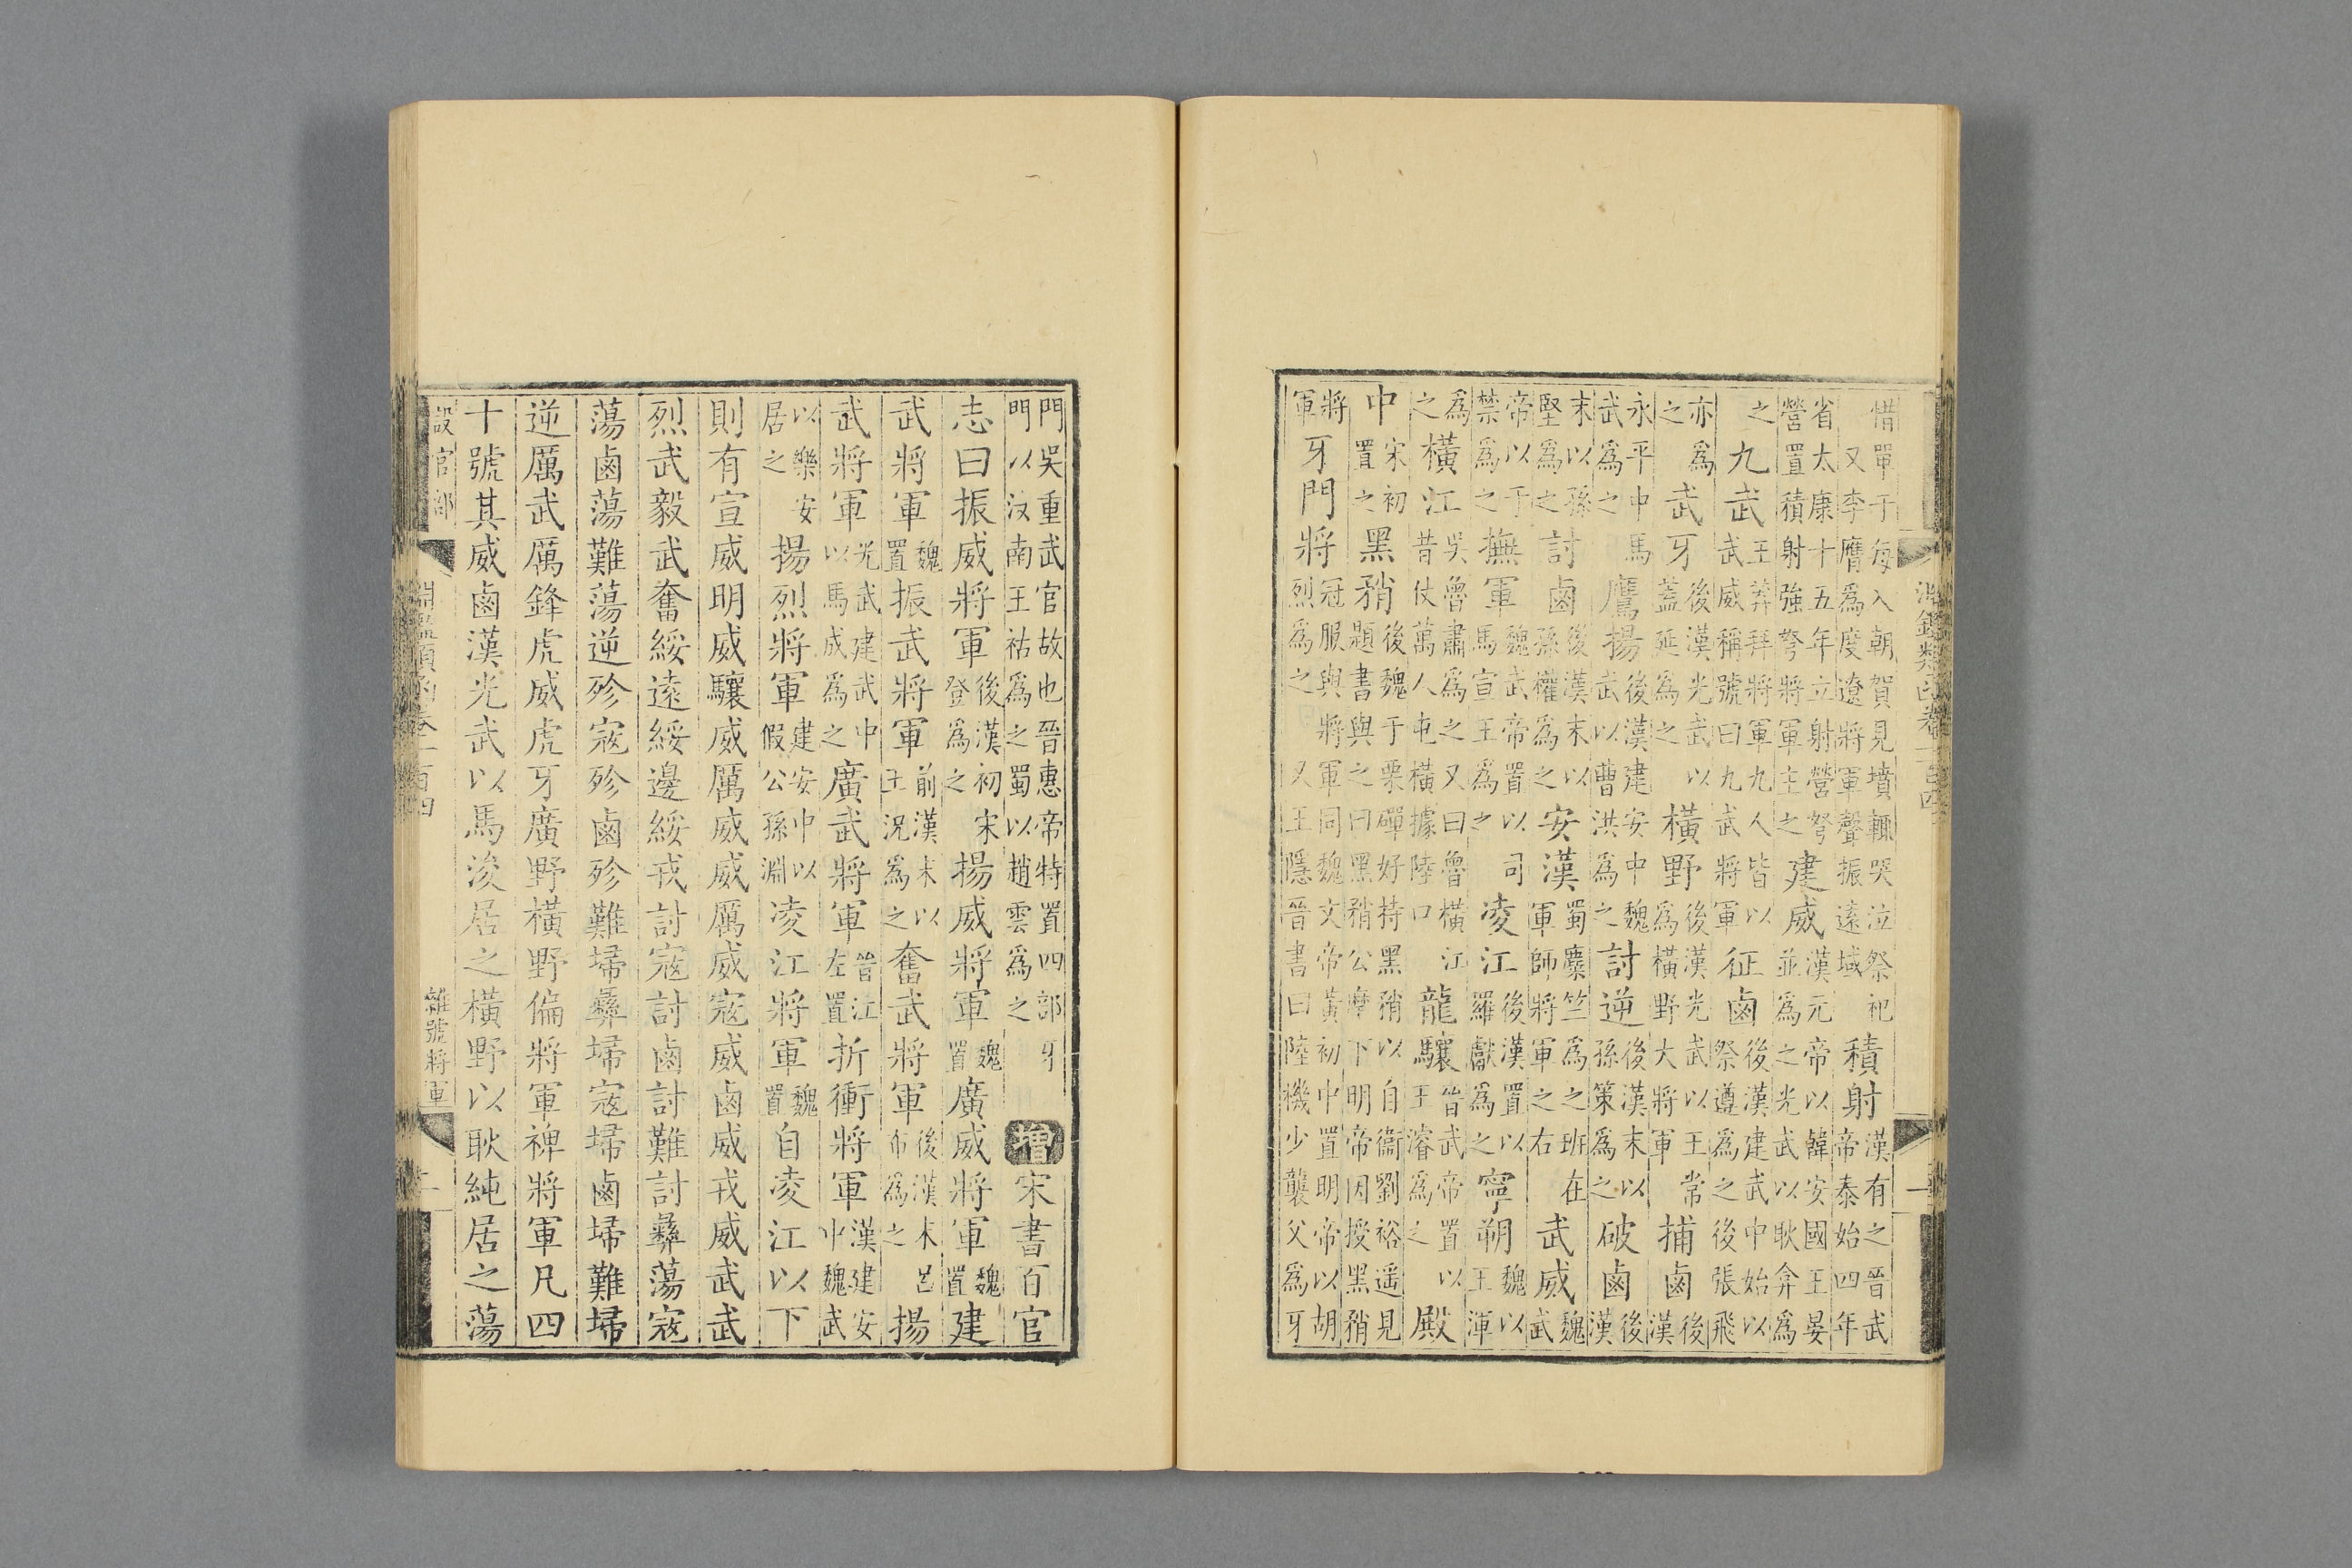 淵鑑類函卷一百四
惜單于每入朝賀見墳輒哭泣祭祀又李膺為度遼將軍聲振遠域積射漢有之晉武帝泰始四年
省太康十五年立射營弩營置積射強弩將軍主之建威漢元帝以韓安國王晏並為之光武以耿弇為
之九武王莽拜將軍九人皆以武威稱號曰九武將軍征鹵後漢建武中始以祭遵為之後張飛
亦為之武牙後漢光武以蓋延為之橫野後漢光武以王常為橫野大將軍捕鹵後漢
永平中馬武為之鷹揚後漢建安中魏武以曹洪為之討逆後漢末以孫策為之破鹵後漢
末以孫堅為之討鹵後漢末以孫權為之安漢蜀麋竺為之班在軍師將軍之右武威魏武
帝以于禁為之撫軍魏武帝置以司馬宣王為之凌江後漢置以羅獻為之寧朔魏以王渾
為之橫江吳魯肅為之又曰魯橫江昔仗萬人屯橫據陸口龍驤晉武帝置以王濬為之殿
中宋初置之黑矟後魏于栗磾好持黑矟以自衞劉裕遥見題書與之曰黑矟公麾下明帝因授黑矟
將軍牙門將冠服與將軍同魏文帝黃初中置明帝以胡烈為之又王隱晉書曰陸機少襲父為牙
門吳重武官故也晉惠帝特置四部牙門以汝南王祐為之蜀以趙雲為之增宋書百官
志曰振威將軍後漢初宋登為之揚威將軍魏置廣威將軍魏置建
武將軍魏置振武將軍前漢末以王況為之奮武將軍後漢末呂布為之揚
武將軍光武建武中以馬成為之廣武將軍晉江左置折衝將軍漢建安中魏武
以樂安居之揚烈將軍建安中以假公孫淵凌江將軍魏置自凌江以下
則有宣威明威驤威厲威威厲威寇威鹵威戎威武武
烈武毅武奮綏遠綏邊綏戎討寇討鹵討難討彝蕩寇
蕩鹵蕩難蕩逆殄寇殄鹵殄難埽彝埽寇埽鹵埽難埽
逆厲武厲鋒虎威虎牙廣野橫野偏將軍裨將軍凡四
十號其威鹵漢光武以馬浚居之橫野以耿純居之蕩
設官部 淵鑑類函卷一百四 雜號將軍